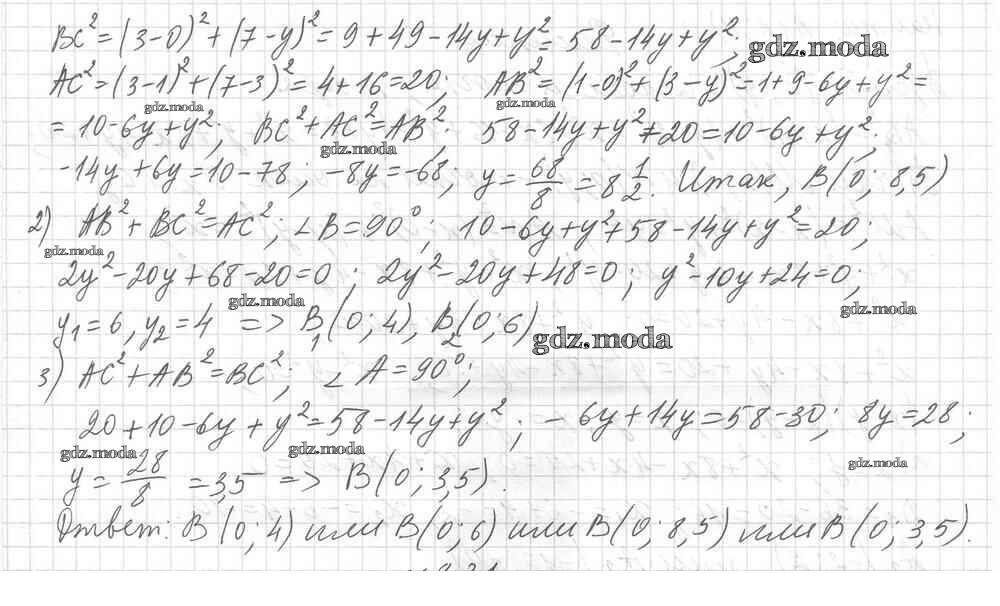 BC² = (3-0)² + (7-y)² = 9 + 49 - 14y + y² = 58 - 14y + y²;
gdz.moda
AC² = (3-1)² + (7-3)² = 4 + 16 = 20; AB² = (1-0)² + (3-y)² = 1 + 9 - 6y + y² =
gdz.moda gdz.moda
= 10 - 6y + y²; BC² + AC² = AB²; 58 - 14y + y² + 20 = 10 - 6y + y²;
gdz.moda
-14y + 6y = 10 - 78; -8y = -68; y = 68/8 = 8 1/2. Итак, B(0; 8,5)
2) AB² + BC² = AC²; ∠B = 90°; 10 - 6y + y² + 58 - 14y + y² = 20;
gdz.moda
2y² - 20y + 68 - 20 = 0; 2y² - 20y + 48 = 0; y² - 10y + 24 = 0;
gdz.moda gdz.moda
y₁ = 6, y₂ = 4 => B₁(0; 4), B₂(0; 6)
gdz.moda
3) AC² + AB² = BC²; ∠A = 90°;
20 + 10 - 6y + y² = 58 - 14y + y²; -6y + 14y = 58 - 30; 8y = 28;
gdz.moda gdz.moda gdz.moda
y = 28/8 = 3,5 => B(0; 3,5).
Ответ: B(0; 4) или B(0; 6) или B(0; 8,5) или B(0; 3,5).